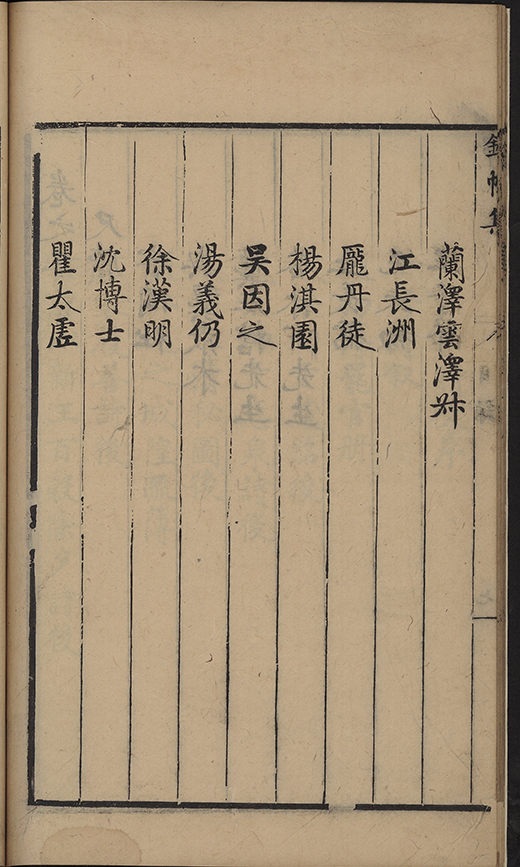 錦帆集
蘭澤雲澤叔
江長洲
龎丹徒
楊淇園
吴因之
湯義仍
徐漢明
沈博士
瞿太虗